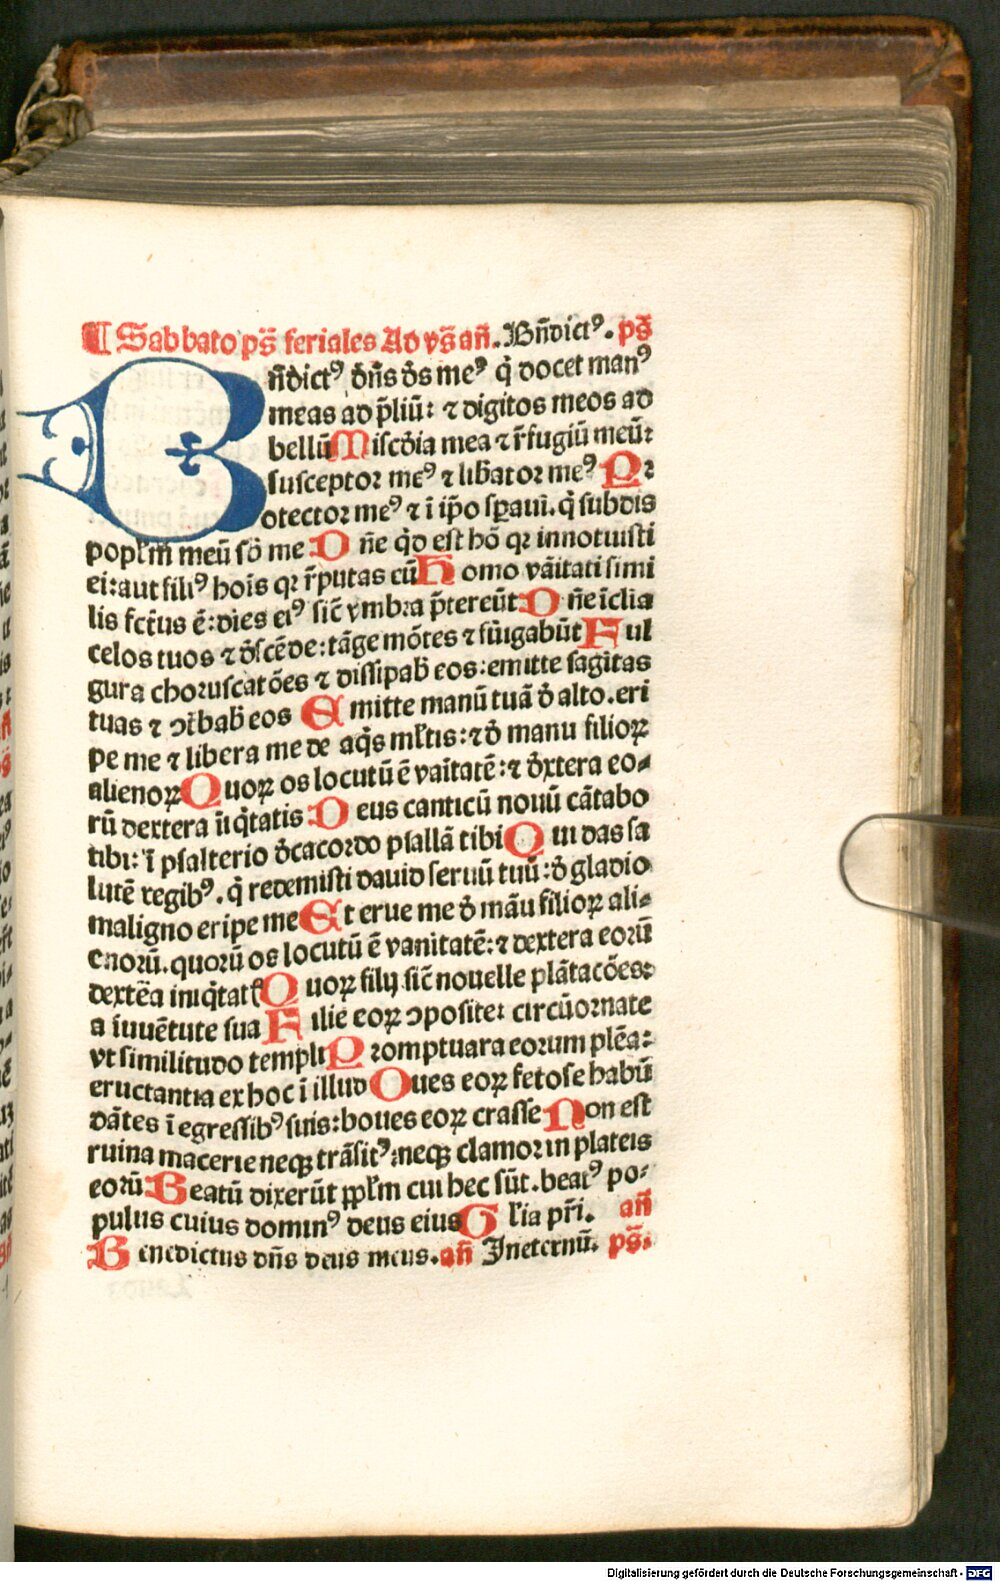 ¶ Sabbato ps̄ feriales Ad vs̄ an̄. Bn̄dictꝰ. ps̄
Bn̄dictꝰ dn̄s ds̄ meꝰ q̇ docet manꝰ
meas ad p̄liū: ⁊ digitos meos ad
bellū Misc̄dia mea ⁊ r̄fugiū meū:
susceptor meꝰ ⁊ lib̄ator meꝰ Pr
otector meꝰ ⁊ ī ip̄o sp̱aui. q̇ subdis
popl̄m meū sb̄ me D n̄e qd̄ est hō qꝛ innotuisti
ei: aut filiꝰ hoīs qꝛ r̄putas eū Homo vāitati simi
lis fct̄us ē: dies eiꝰ sic̄ vmbra p̄tereūt D n̄e īclīa
celos tuos ⁊ d̄scēde: tāge mōtes ⁊ fūigabūt Ful
gura choruscatōes ⁊ dissipab̄ eos: emitte sagitas
tuas ⁊ ↄt̄bab̄ eos Emitte manū tuā d̄ alto. eri
pe me ⁊ libera me de aqs̄ ml̄tis: ⁊ d̄ manu filioꝝ
alienoꝝ Quoꝝ os locutū ē vaītatē: ⁊ d̄xtera eo-
rū dextera īiq̇tatis Deus canticū nouū cātabo
tibi: ī psalterio d̄cacordo psallā tibi Qui das sa
lutē regibꝰ. q̇ redemisti dauid seruū tuū: d̄ gladio
maligno eripe me Et erue me d̄ māu filioꝝ ali-
enorū. quorū os locutū ē vanitatē: ⁊ dextera eorū
dextēa iniq̇tatꝭ Quoꝝ filij sic̄ nouelle plātacōes:
a iuuētute sua Filie eoꝝ ↄposite: circūornate
vt similitudo templi Promptuara eorum plēa:
eructantia ex hoc ī illud Oues eoꝝ fetose habū
dātes ī egressibꝰ suis: boues eoꝝ crasse Non est
ruina macerie neqꝫ trāsitꝰ: neqꝫ clamor in plateis
eorū Beatū dixerūt ꝓpl̄m cui hec sūt. beatꝰ po-
pulus cuius dominꝰ deus eius Gl̄ia pr̄i. an̄
Benedictus dn̄s deus meus. an̄ In eternū. ps̄.
Digitalisierung gefördert durch die Deutsche Forschungsgemeinschaft - DFG